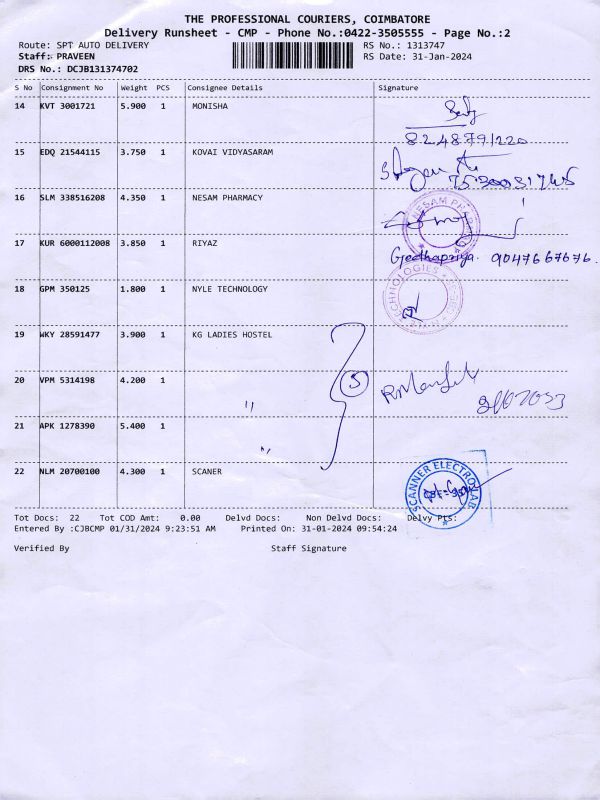 THE PROFESSIONAL COURIERS, COIMBATORE
Delivery Runsheet - CMP - Phone No.:0422-3505555 - Page No.:2
Route: SPT AUTO DELIVERY RS No.: 1313747
Staff: PRAVEEN RS Date: 31-Jan-2024
DRS No.: DCJB131374702
S No Consignment No Weight PCS Consignee Details Signature
14 KVT 3001721 5.900 1 MONISHA
8248791220
15 EDQ 21544115 3.750 1 KOVAI VIDYASARAM
16 SLM 338516208 4.350 1 NESAM PHARMACY
NESAM PHARMACY
17 KUR 6000112008 3.850 1 RIYAZ
Geethapriya. 9047667676.
18 GPM 350125 1.800 1 NYLE TECHNOLOGY
19 WKY 28591477 3.900 1 KG LADIES HOSTEL
20 VPM 5314198 4.200 1
"
5
21 APK 1278390 5.400 1
"
22 NLM 20700100 4.300 1 SCANER
SCANNER ELECTROLAB
Tot Docs: 22 Tot COD Amt: 0.00 Delvd Docs: Non Delvd Docs: Delvy Pts:
Entered By :CJBCMP 01/31/2024 9:23:51 AM Printed On: 31-01-2024 09:54:24
Verified By Staff Signature